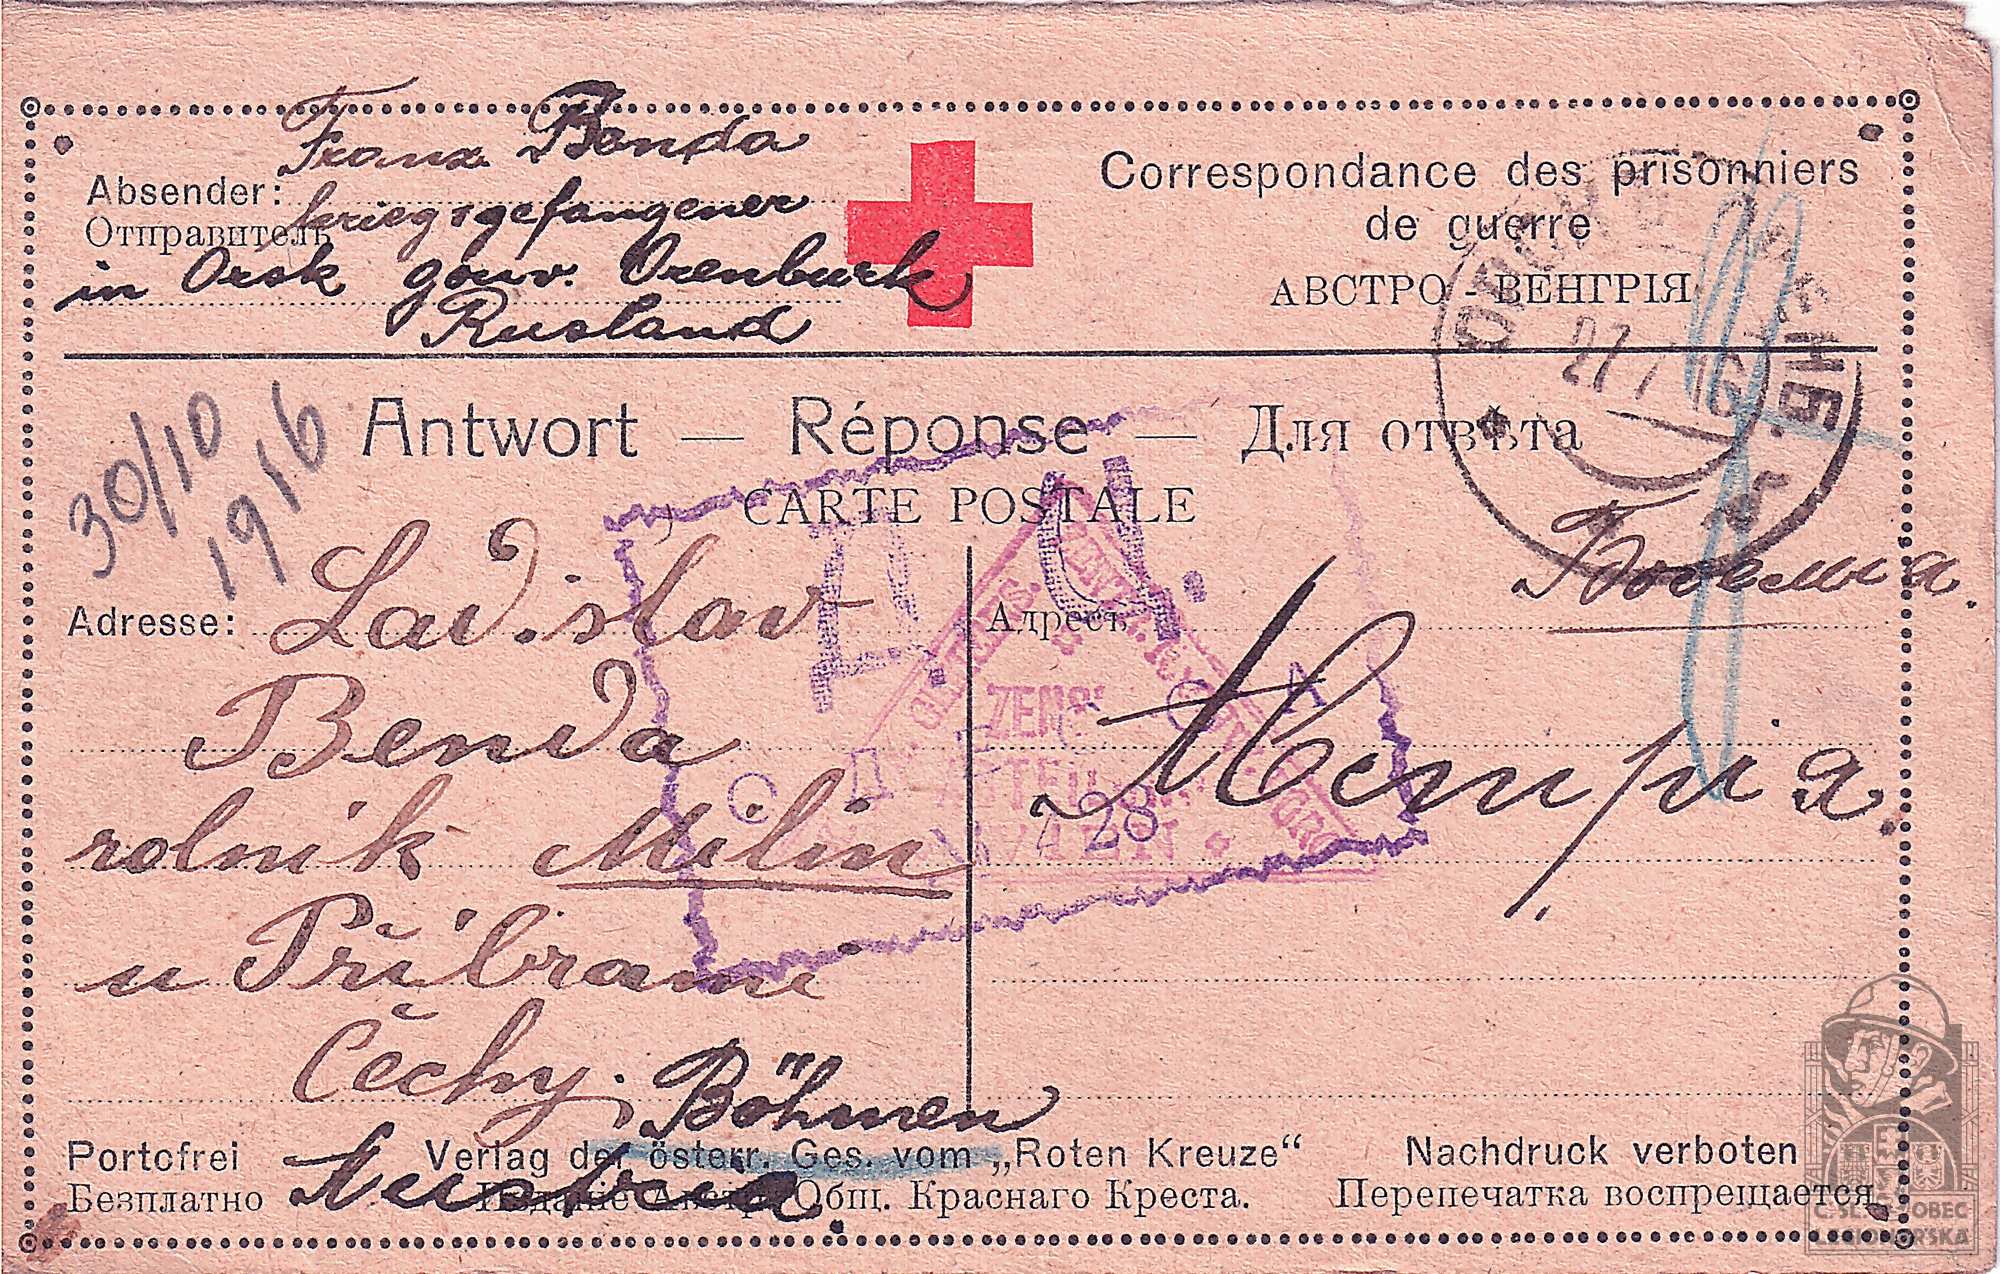 Franz Benda
Absender: kriegsgefangener
Отправитель
in Orsk gouv. Orenburk
Rusland
Correspondance des prisonniers
de guerre
АВСТРО-ВЕНГРІЯ
27 7 16
30/10
1916
Antwort — Réponse — Для отвѣта
CARTE POSTALE
Adresse: Ladislav
Benda
rolnik Milin
u Přibrami
Čechy. Böhmen
Austria.
Адресъ
Богемия.
Австрія.
28
Portofrei
Безплатно
Verlag der österr. Ges. vom „Roten Kreuze“
Изданіе Австр. Общ. Краснаго Креста.
Nachdruck verboten
Перепечатка воспрещается
OBEC
LEGIONÁŘSKÁ